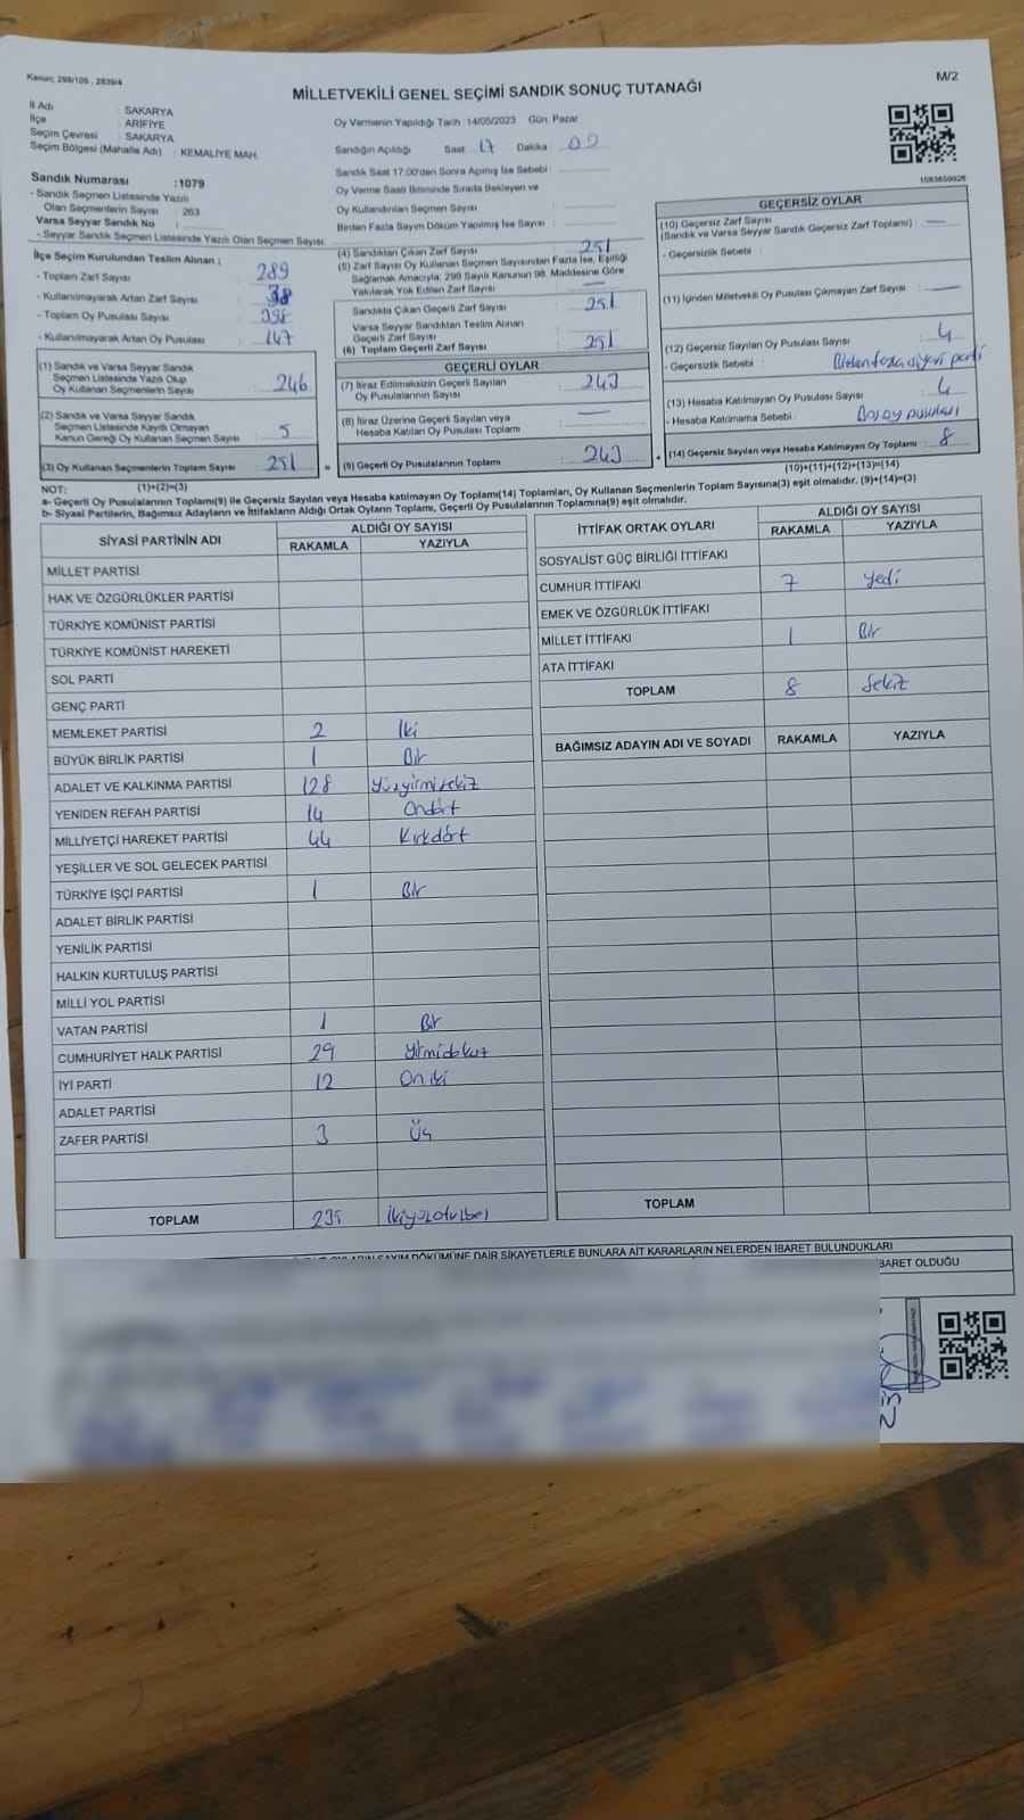 Kanun: 298/105 , 2839/4
M/2
MİLLETVEKİLİ GENEL SEÇİMİ SANDIK SONUÇ TUTANAĞI
İl Adı : SAKARYA
İlçe : ARİFİYE
Seçim Çevresi : SAKARYA
Seçim Bölgesi (Mahalle Adı) : KEMALİYE MAH.
Oy Vermenin Yapıldığı Tarih :14/05/2023 Gün: Pazar
Sandığın Açıldığı Saat 17 Dakika 00
Sandık Saat 17:00'den Sonra Açılmış İse Sebebi :
Oy Verme Saati Bitiminde Sırada Bekleyen ve
Oy Kullandırılan Seçmen Sayısı
Birden Fazla Sayım Döküm Yapılmış İse Sayısı :
Sandık Numarası :1079
- Sandık Seçmen Listesinde Yazılı
Olan Seçmenlerin Sayısı : 263
Varsa Seyyar Sandık No :
- Seyyar Sandık Seçmen Listesinde Yazılı Olan Seçmen Sayısı:
İlçe Seçim Kurulundan Teslim Alınan :
- Toplam Zarf Sayısı : 289
- Kullanılmayarak Artan Zarf Sayısı : 38
- Toplam Oy Pusulası Sayısı :
- Kullanılmayarak Artan Oy Pusulası : 147
(1) Sandık ve Varsa Seyyar Sandık
Seçmen Listesinde Yazılı Olup
Oy Kullanan Seçmenlerin Sayısı : 246
(2) Sandık ve Varsa Seyyar Sandık
Seçmen Listesinde Kayıtlı Olmayan
Kanun Gereği Oy Kullanan Seçmen Sayısı : 5
(3) Oy Kullanan Seçmenlerin Toplam Sayısı : 251
(1)+(2)=(3)
(4) Sandıktan Çıkan Zarf Sayısı : 251
(5) Zarf Sayısı Oy Kullanan Seçmen Sayısından Fazla İse, Eşitliği
Sağlamak Amacıyla; 298 Sayılı Kanunun 98. Maddesine Göre
Yakılarak Yok Edilen Zarf Sayısı : —
Sandıkta Çıkan Geçerli Zarf Sayısı : 251
Varsa Seyyar Sandıktan Teslim Alınan
Geçerli Zarf Sayısı
(6) Toplam Geçerli Zarf Sayısı : 251
GEÇERLİ OYLAR
(7) İtiraz Edilmeksizin Geçerli Sayılan
Oy Pusulalarının Sayısı : 243
(8) İtiraz Üzerine Geçerli Sayılan veya
Hesaba Katılan Oy Pusulası Toplamı : —
= (9) Geçerli Oy Pusulalarının Toplamı : 243
GEÇERSİZ OYLAR
(10) Geçersiz Zarf Sayısı
(Sandık ve Varsa Seyyar Sandık Geçersiz Zarf Toplamı) : —
- Geçersizlik Sebebi :
(11) İçinden Milletvekili Oy Pusulası Çıkmayan Zarf Sayısı : —
(12) Geçersiz Sayılan Oy Pusulası Sayısı : 4
- Geçersizlik Sebebi : Birden fazla siyasi parti
(13) Hesaba Katılmayan Oy Pusulası Sayısı : 4
- Hesaba Katılmama Sebebi : Boş oy pusulası
+ (14) Geçersiz Sayılan veya Hesaba Katılmayan Oy Toplamı : 8
(10)+(11)+(12)+(13)=(14)
NOT:
a- Geçerli Oy Pusulalarının Toplamı(9) ile Geçersiz Sayılan veya Hesaba katılmayan Oy Toplamı(14) Toplamları, Oy Kullanan Seçmenlerin Toplam Sayısına(3) eşit olmalıdır. (9)+(14)=(3)
b- Siyasi Partilerin, Bağımsız Adayların ve İttifakların Aldığı Ortak Oyların Toplamı, Geçerli Oy Pusulalarının Toplamına(9) eşit olmalıdır.
SİYASİ PARTİNİN ADI ALDIĞI OY SAYISI
RAKAMLA YAZIYLA
MİLLET PARTİSİ
HAK VE ÖZGÜRLÜKLER PARTİSİ
TÜRKİYE KOMÜNİST PARTİSİ
TÜRKİYE KOMÜNİST HAREKETİ
SOL PARTİ
GENÇ PARTİ
MEMLEKET PARTİSİ 2 İki
BÜYÜK BİRLİK PARTİSİ 1 Bir
ADALET VE KALKINMA PARTİSİ 128 Yüzyirmisekiz
YENİDEN REFAH PARTİSİ 14 Ondört
MİLLİYETÇİ HAREKET PARTİSİ 44 Kırkdört
YEŞİLLER VE SOL GELECEK PARTİSİ
TÜRKİYE İŞÇİ PARTİSİ 1 Bir
ADALET BİRLİK PARTİSİ
YENİLİK PARTİSİ
HALKIN KURTULUŞ PARTİSİ
MİLLİ YOL PARTİSİ
VATAN PARTİSİ 1 Bir
CUMHURİYET HALK PARTİSİ 29 Yirmidokuz
İYİ PARTİ 12 Oniki
ADALET PARTİSİ
ZAFER PARTİSİ 3 Üç
TOPLAM 235 İkiyüzotuzbeş
İTTİFAK ORTAK OYLARI ALDIĞI OY SAYISI
RAKAMLA YAZIYLA
SOSYALİST GÜÇ BİRLİĞİ İTTİFAKI
CUMHUR İTTİFAKI 7 Yedi
EMEK VE ÖZGÜRLÜK İTTİFAKI
MİLLET İTTİFAKI 1 Bir
ATA İTTİFAKI
TOPLAM 8 Sekiz
BAĞIMSIZ ADAYIN ADI VE SOYADI RAKAMLA YAZIYLA
TOPLAM
SAYIM DÖKÜMÜNE DAİR ŞİKAYETLERLE BUNLARA AİT KARARLARIN NELERDEN İBARET BULUNDUKLARI
BARET OLDUĞU